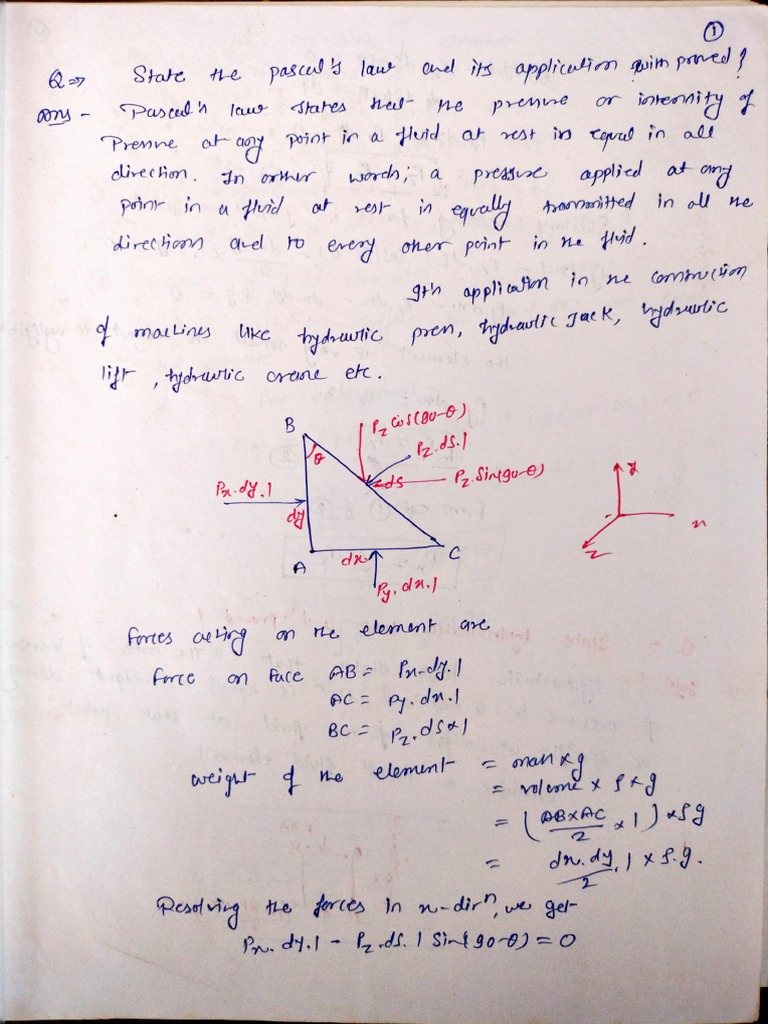 1
Q⇒ State the pascal's law and its application with proved?
Ans - Pascal's law states that the pressure or intensity of
Pressure at any point in a fluid at rest is equal in all
direction. In other words; a pressure applied at any
point in a fluid at rest is equally transmitted in all the
directions and to every other point in the fluid.
Its application in the construction
of machines like hydraulic press, hydraulic Jack, hydraulic
lift, hydraulic crane etc.
B
θ
Pz cos(90-θ)
Pz.ds.1
ds
Pz.Sin(90-θ)
Px.dy.1
dy
A
dx
C
Py.dx.1
y
x
z
Forces acting on the element are
Force on Face AB = Px.dy.1
AC = Py.dx.1
BC = Pz.ds×1
weight of the element = mass×g
= volume × ρ × g
= (AB×AC/2 × 1) × ρg
= dx.dy/2 . 1 × ρ.g.
Resolving the forces in x-dirⁿ, we get
Px.dy.1 - Pz.ds.1 Sin(90-θ) = 0